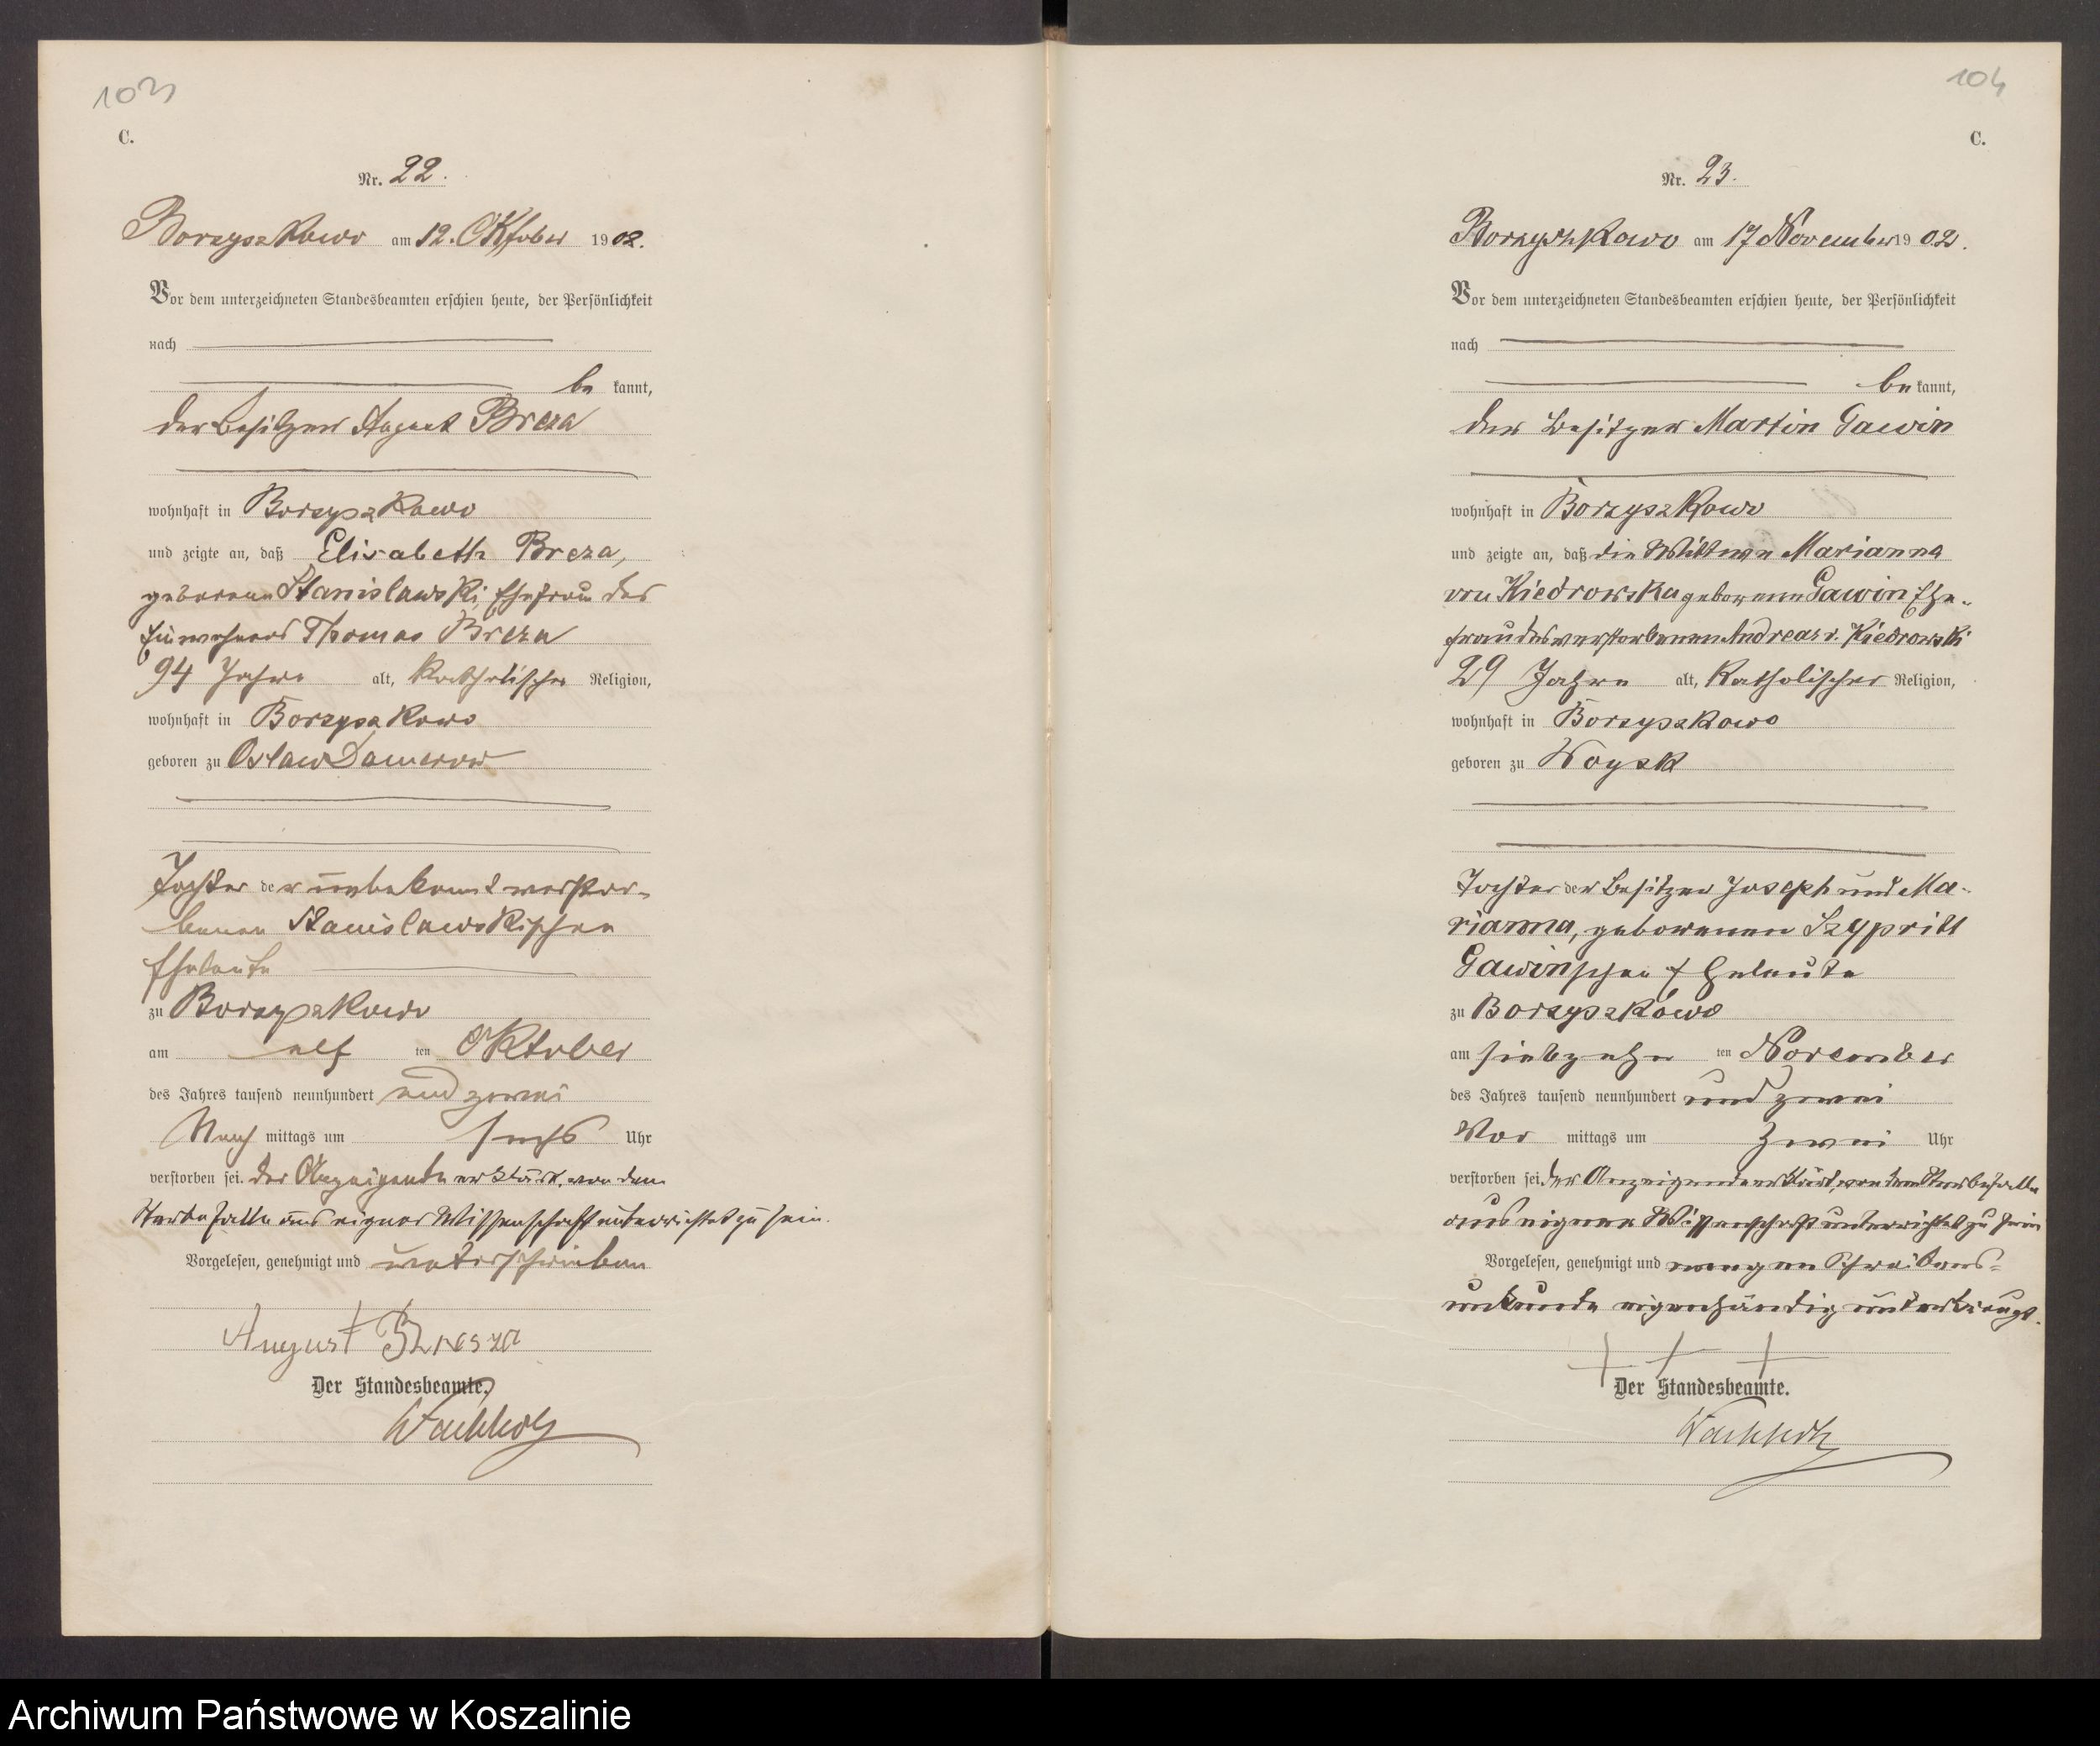 103
C.
Nr. 22.
Borzyszkowo am 12. Oktober 1902.
Vor dem unterzeichneten Standesbeamten erschien heute, der Persönlichkeit
nach
be kannt,
der Besitzer August Breza
wohnhaft in Borzyszkowo
und zeigte an, daß Elisabeth Breza,
geborene Stanislawski, Ehefrau des
Einwohners Thomas Breza
94 Jahre alt, katholischer Religion,
wohnhaft in Borzyszkowo
geboren zu Oslaw Damerow
Tochter der unbekannt verstor-
benen Stanislawskischen
Eheleute
zu Borzyszkowo
am elf ten Oktober
des Jahres tausend neunhundert und zwei
Nach mittags um sechs Uhr
verstorben sei. Der Anzeigende erklärt, von dem
Sterbefalle aus eigner Wissenschaft unterrichtet zu sein.
Vorgelesen, genehmigt und unterschrieben
August
Der Standesbeamte.
Wachholz
104
C.
Nr. 23.
Borzyszkowo am 17 November 1902.
Vor dem unterzeichneten Standesbeamten erschien heute, der Persönlichkeit
nach
be kannt,
der Besitzer Martin Gawin
wohnhaft in Borzyszkowo
und zeigte an, daß die Wittwe Marianna
von Kiedrowska geborene Gawin Ehe-
frau des verstorbenen Andreas v. Kiedrowski
29 Jahre alt, katholischer Religion,
wohnhaft in Borzyszkowo
geboren zu Woysk
Tochter der Besitzer Joseph und Ma-
rianna, geborenen
Gawinschen Eheleute
zu Borzyszkowo
am siebzehn ten November
des Jahres tausend neunhundert und zwei
Vor mittags um zwei Uhr
verstorben sei. Der Anzeigende erklärt, von dem Sterbefalle
aus eigener Wissenschaft unterrichtet zu sein
Vorgelesen, genehmigt und wegen Schreibens-
unkunde eigenhändig unterkreuzt.
+ + +
Der Standesbeamte.
Wachholz
Archiwum Państwowe w Koszalinie